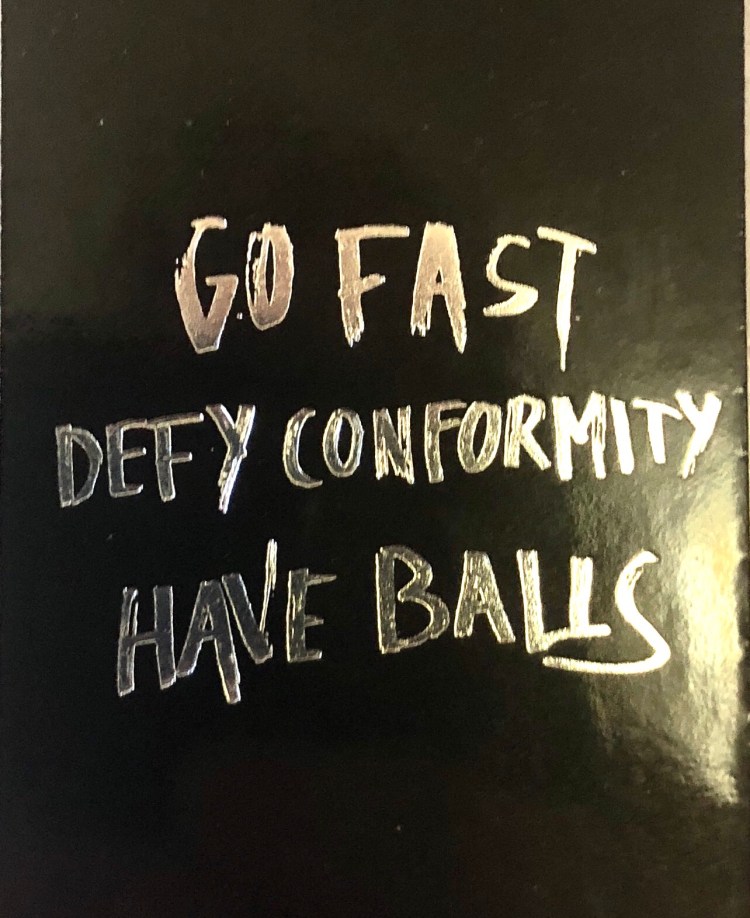 GO FAST
DEFY CONFORMITY
HAVE BALLS